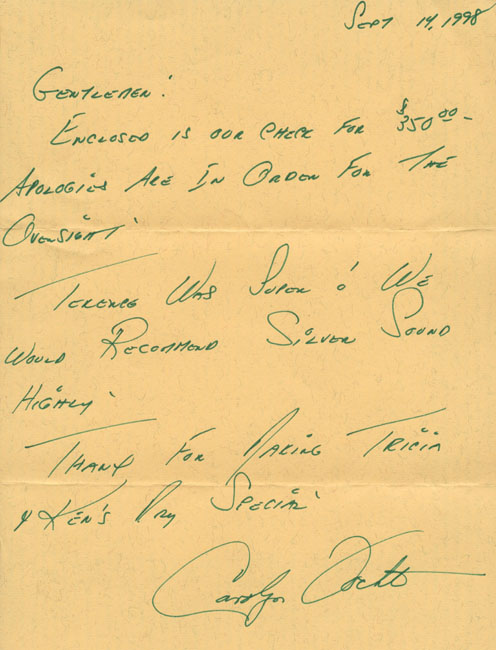 Sept 14, 1998
Gentlemen!
Enclosed is our check for $350.00-
Apologies Are In Order For The
Oversight!
Terence Was Super & We
Would Recommend Silver Sound
Highly!
Thanx For Making Tricia
& Ken's Day Special!
Carolyn